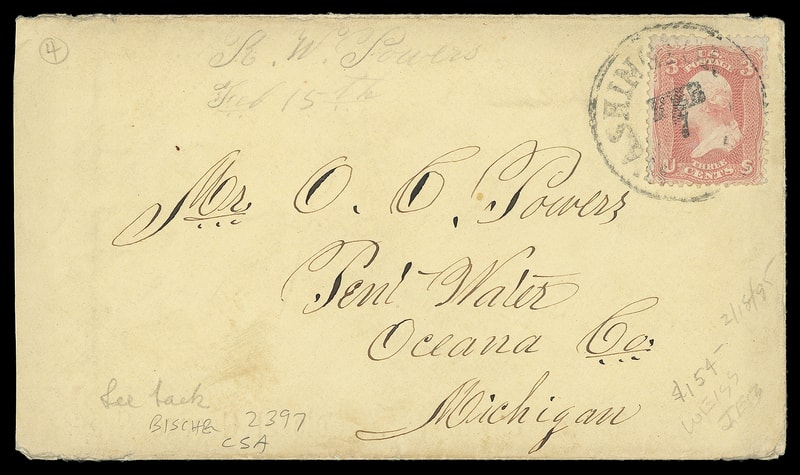 4
R. W. Powers
Feb 15th
ASHIN
FEB
1
3 U.S. 3
POSTAGE
THREE
CENTS
U S
Mr. O. C. Powers
Pent Water
Oceana Co.
Michigan
See back
BISCHEL 2397
CSA
$154-
2/18/95
WEISS